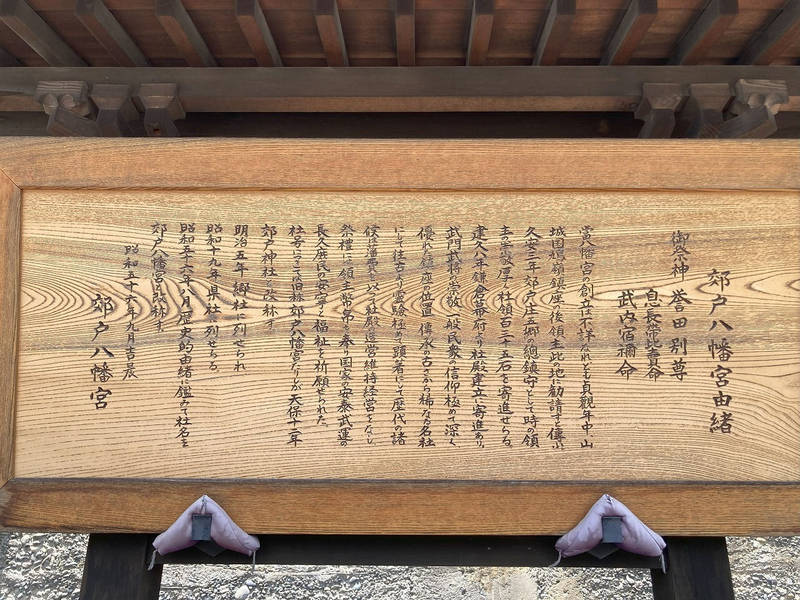 郊戸八幡宮由緒
御祭神 誉田別尊
息長帯比賣命
武内宿禰命
当八幡宮の創立は不詳なれども貞観年中、山
城国鳩嶺鎮座の後領主此の地に勧請すと傳ふ。
久安三年郊戸庄三郷の總鎮守として時の領
主の崇敬厚く社領百三十五石を寄進せらる。
建久八年鎌倉幕府より社殿建立に寄進あり。
武門武将の崇敬一般民衆の信仰極めて深く
優れた鎮座の位置、傳承の古さから稀なる名社
にして往古より霊験極めて顕著にして歴代の諸
侯は藩費を以って社殿の造営維持経営をなし
祭禮には領主幣帛を奉り国家の安泰武運の
長久庶民の安寧と福祉を祈願せられた。
社号にては旧称郊戸八幡宮なりしが天保十二年
郊戸神社と改称す。
明治五年 郷社に列せられ
昭和十九年県社に列せらる。
昭和五十六年八月歴史的由緒に鑑みて社名を
郊戸八幡宮と改称す。
昭和五十六年九月吉辰
郊戸八幡宮